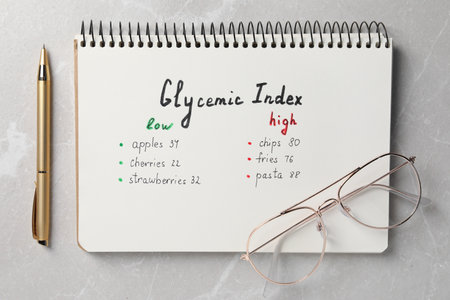 Glycemic Index
low
high
apples 34
chips 80
cherries 22
fries 76
strawberries 32
pasta 88